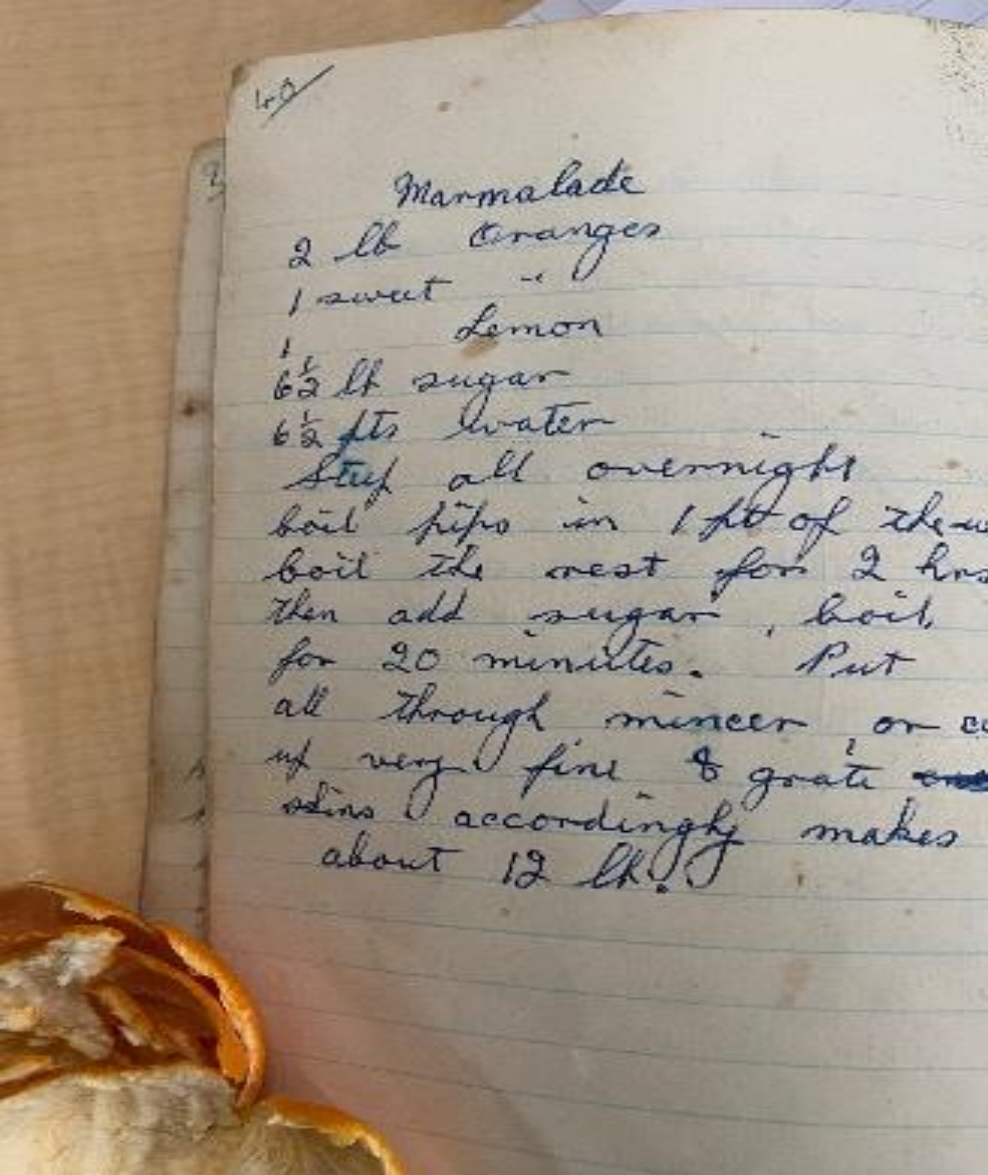 40
Marmalade
2 lb Oranges
1 sweet "
1 Lemon
6½ lb sugar
6½ pts water
Steep all overnight
boil pips in 1 pt of the
boil the rest for 2 hrs
then add sugar, boil
for 20 minutes. Put
all through mincer, or
up very fine & grate
skins accordingly makes
about 12 lb.